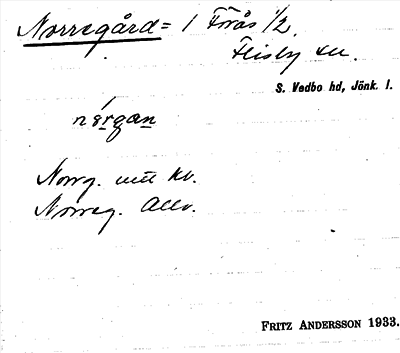 Norregård = 1 Förås 1/2
Flisby sn.
S. Vedbo hd, Jönk. l.
Norrg. utt Kv.
Norreg. Allv.
FRITZ ANDERSSON 1933.